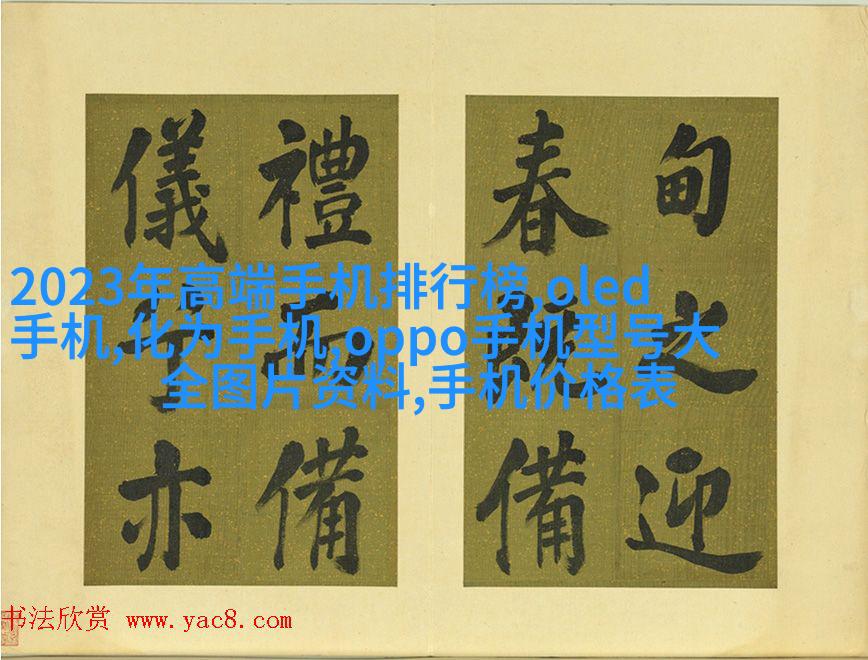 甸之迎
春既備
禮而備
儀亦
2023年高端手机排行榜,oled
手机,化为手机,oppo手机型号大
全图片资料,手机价格表
书法欣赏 www.yac8.com